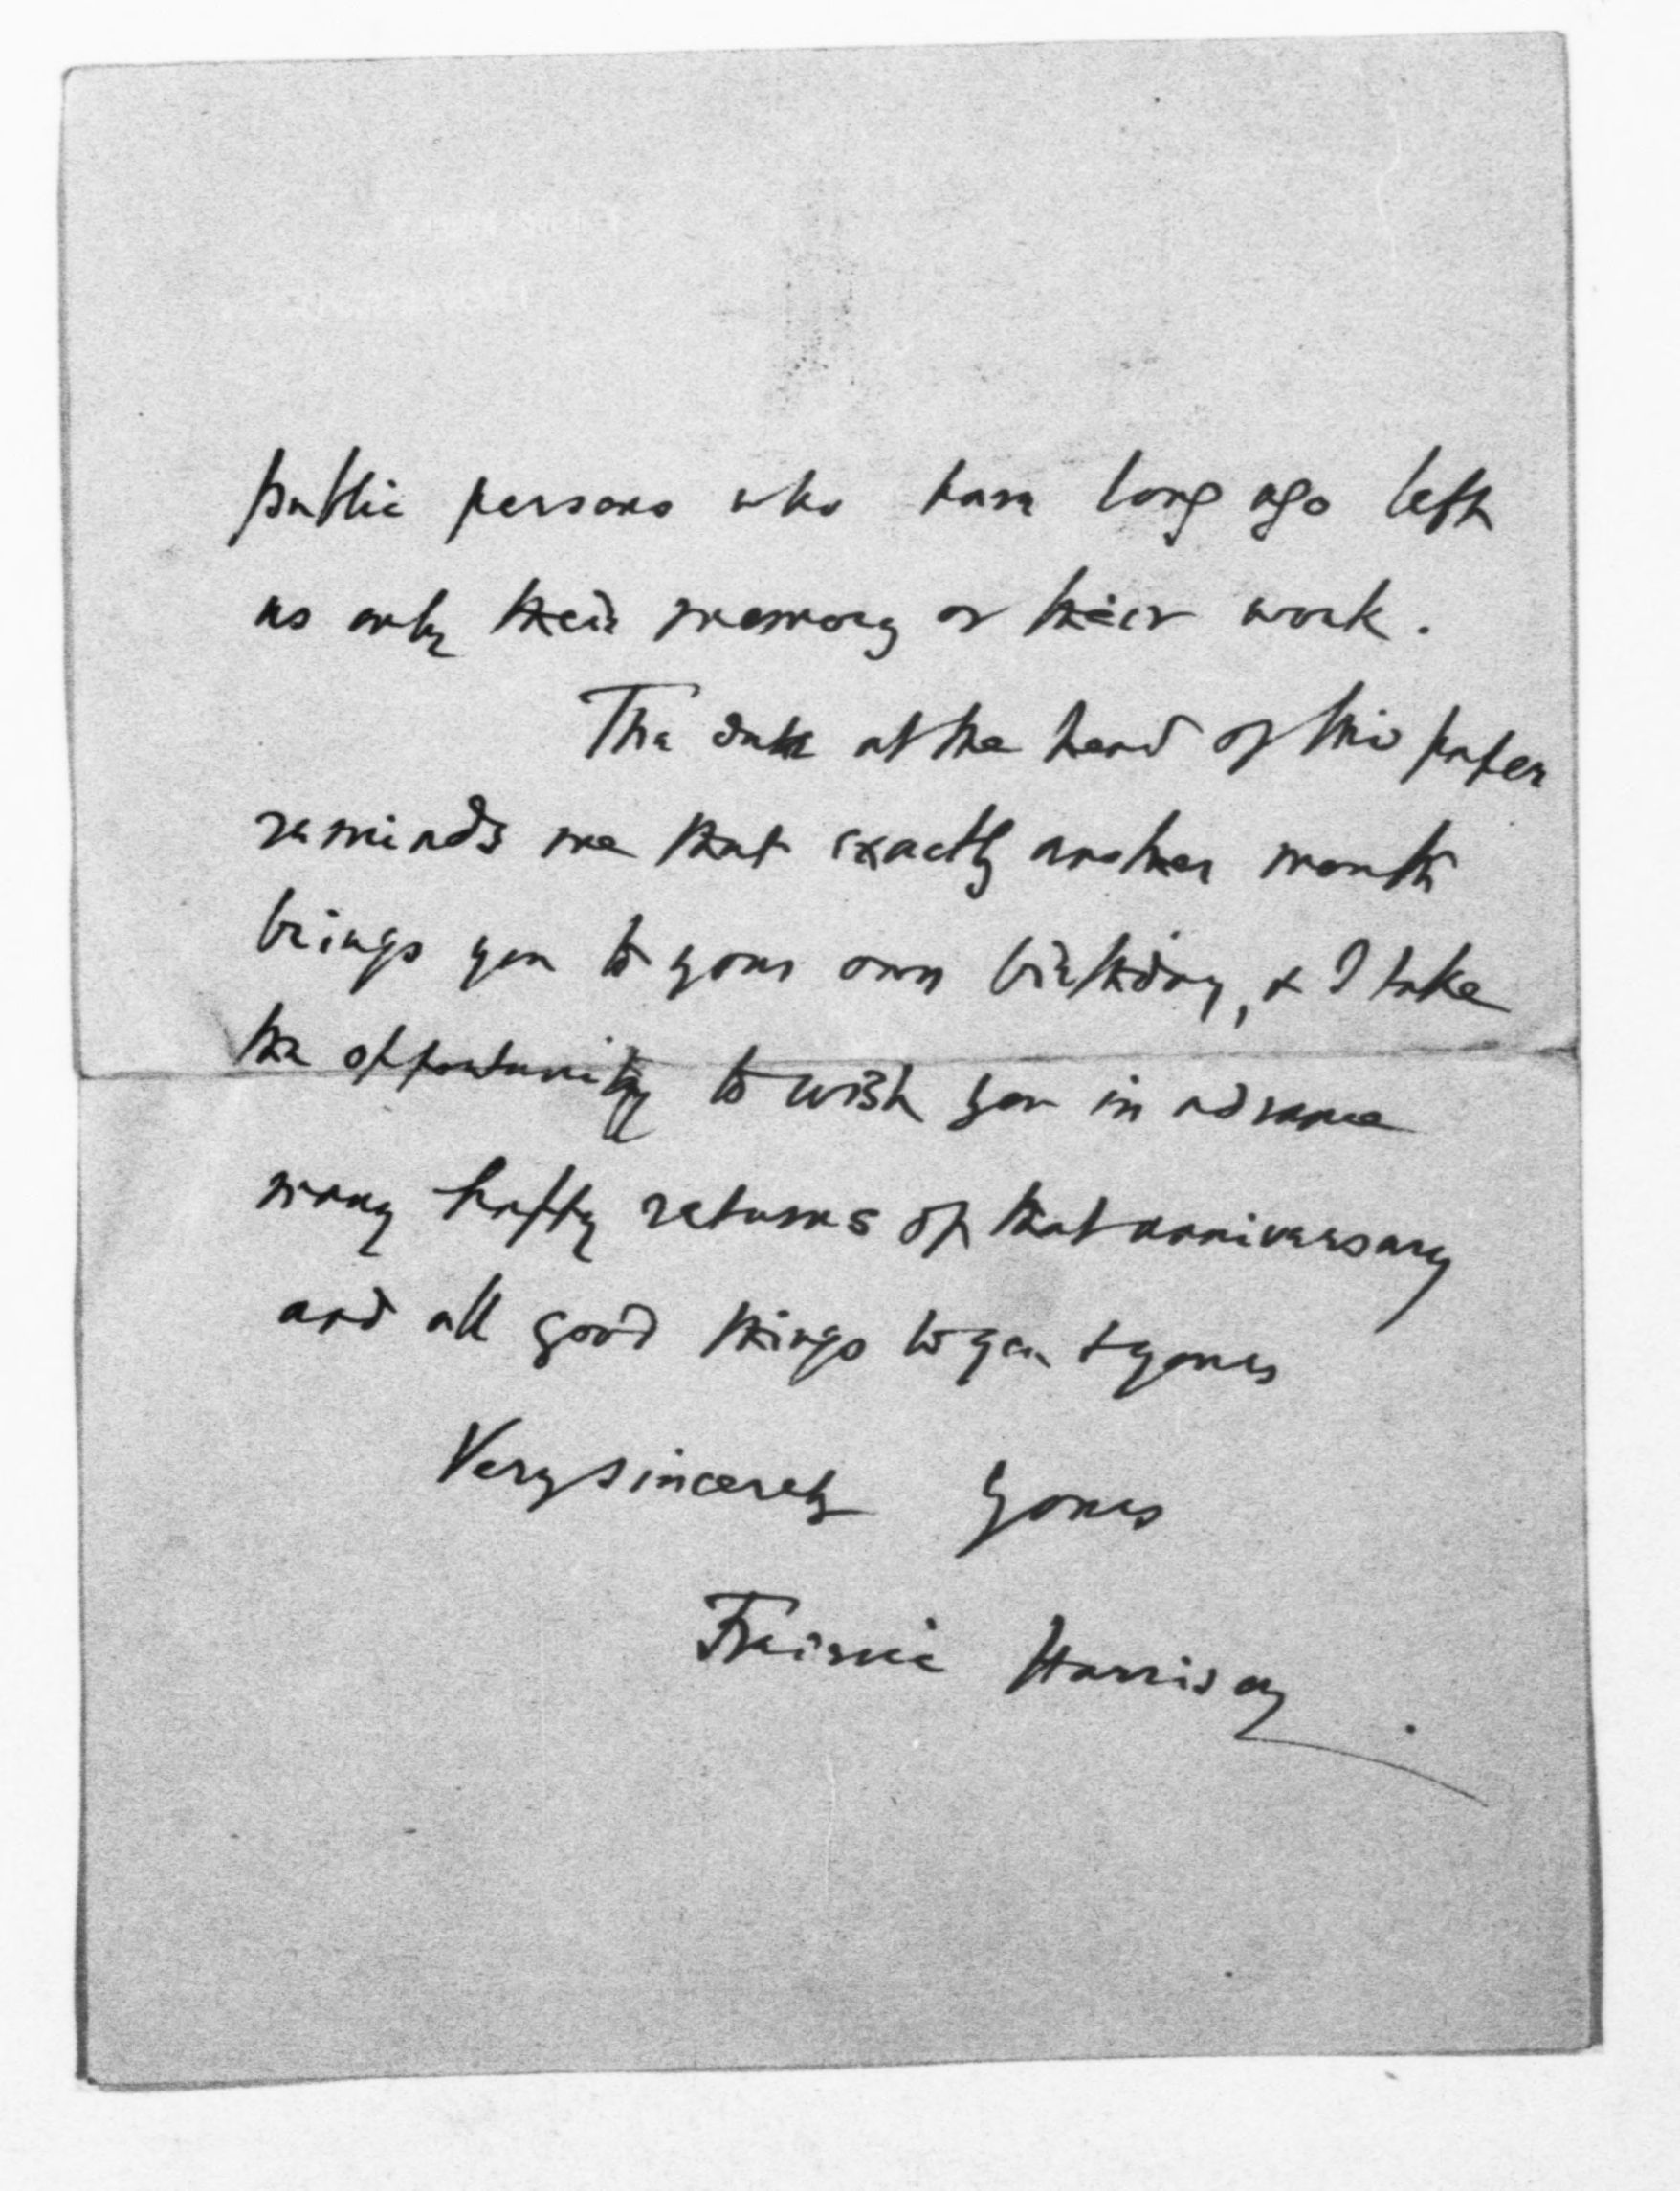 public persons who have long ago left
us only their memory or their work.
The date at the head of this paper
reminds me that exactly another month
brings you to your own birthday, & I take
the opportunity to wish you in advance
many happy returns of that anniversary
and all good things to you & yours
Very sincerely yours
Harrison